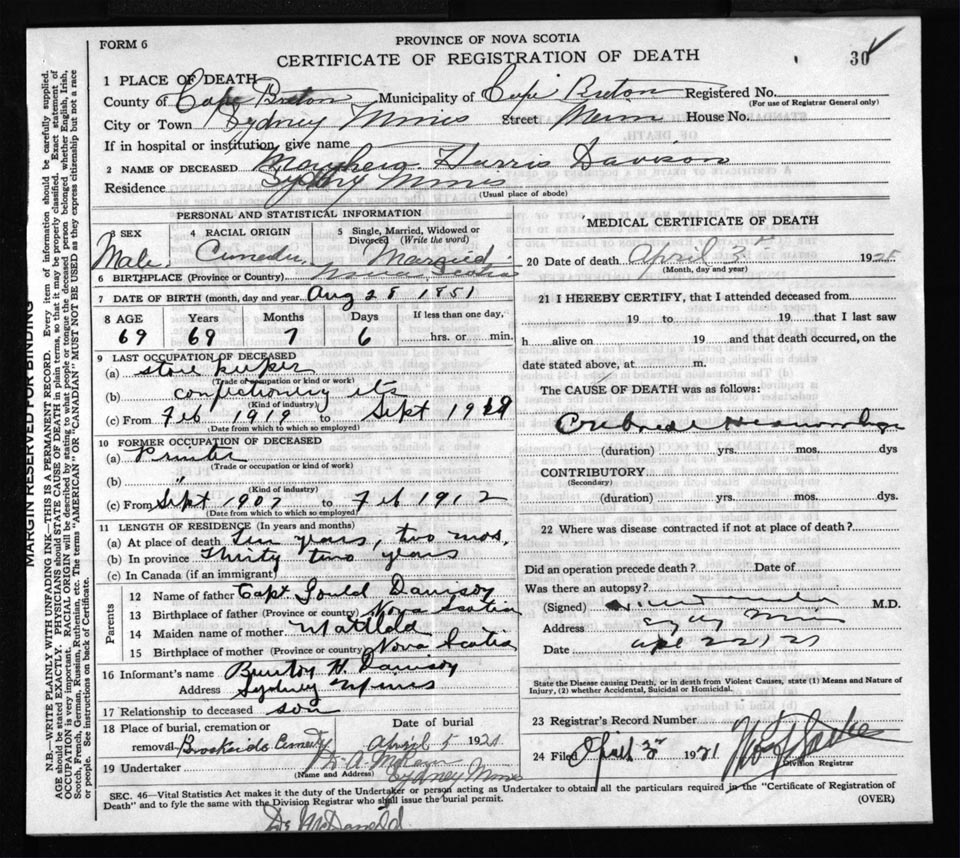 FORM 6
PROVINCE OF NOVA SCOTIA
CERTIFICATE OF REGISTRATION OF DEATH
30
1 PLACE OF DEATH
County of Cape Breton Municipality of Cape Breton Registered No.
(For use of Registrar General only)
City or Town Sydney Mines Street Main House No.
If in hospital or institution, give name
2 NAME OF DECEASED Harris Davison
Residence Sydney Mines
(Usual place of abode)
PERSONAL AND STATISTICAL INFORMATION
3 SEX
Male
4 RACIAL ORIGIN
5 Single, Married, Widowed or Divorced (Write the word)
Married
6 BIRTHPLACE (Province or Country) Nova Scotia
7 DATE OF BIRTH (month, day and year) Aug 28 1851
8 AGE Years Months Days If less than one day,
69 69 7 6 hrs. or min.
9 LAST OCCUPATION OF DECEASED
(a) store keeper
(Trade or occupation or kind of work)
(b) confectionery etc
(Kind of industry)
(c) From Feb 1912 to Sept 1919
(Date from which to which so employed)
10 FORMER OCCUPATION OF DECEASED
(a) Printer
(Trade or occupation or kind of work)
(b) "
(Kind of industry)
(c) From Sept 1907 to Feb 1912
(Date from which to which so employed)
11 LENGTH OF RESIDENCE (In years and months)
(a) At place of death Ten years, two mos.
(b) In province Thirty two years
(c) In Canada (if an immigrant)
Parents
12 Name of father Capt. Gould Davison
13 Birthplace of father (Province or country) Nova Scotia
14 Maiden name of mother Matilda
15 Birthplace of mother (Province or country) Nova Scotia
16 Informant's name Burton H. Davison
Address Sydney Mines
17 Relationship to deceased son
18 Place of burial, cremation or Date of burial
removal Brookside Cemetery April 5 1921
19 Undertaker
(Name and Address) Sydney Mines
MEDICAL CERTIFICATE OF DEATH
20 Date of death April 3rd 1921
(Month, day and year)
21 I HEREBY CERTIFY, that I attended deceased from
19 to 19 that I last saw
h alive on 19 and that death occurred, on the
date stated above, at m.
The CAUSE OF DEATH was as follows:
Cerebral Hemorrhage
(duration) yrs. mos. dys
CONTRIBUTORY
(Secondary)
(duration) yrs. mos. dys.
22 Where was disease contracted if not at place of death?
Did an operation precede death? Date of
Was there an autopsy?
(Signed) M.D.
Address Syd Mines
Date
State the Disease causing Death, or in death from Violent Causes, state (1) Means and Nature of
Injury, (2) whether Accidental, Suicidal or Homicidal.
23 Registrar's Record Number
24 Filed April 3rd 1921
Division Registrar
SEC. 46—Vital Statistics Act makes it the duty of the Undertaker or person acting as Undertaker to obtain all the particulars required in the "Certificate of Registration of
Death" and to fyle the same with the Division Registrar who shall issue the burial permit.
(OVER)
Dr McDonald
MARGIN RESERVED FOR BINDING
N.B.—WRITE PLAINLY WITH UNFADING INK—THIS IS A PERMANENT RECORD. Every item of information should be carefully supplied.
AGE should be stated EXACTLY. PHYSICIANS should STATE CAUSE OF DEATH in plain terms, so that it may be properly classified. Exact statement of
OCCUPATION is very important. RACIAL ORIGIN will be described by stating to what people or tongue the deceased person belonged whether English, Irish,
Scotch, French, German, Russian, Ruthenian, etc. The terms "AMERICAN" OR "CANADIAN" MUST NOT BE USED as they express citizenship but not a race
or people. See instructions on back of Certificate.